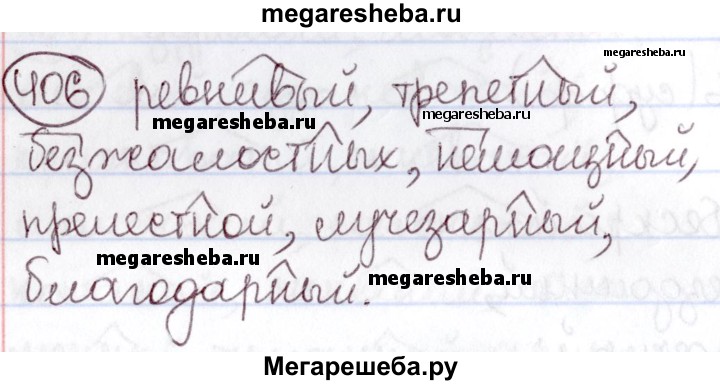 megaresheba.ru
406 ревнивый, трепетный,
megaresheba.ru
megaresheba.ru
безжалостных,
megaresheba.ru
прелестной, лучезарный,
megaresheba.ru
благодарный.
megaresheba.ru
Мегарешеба.ру